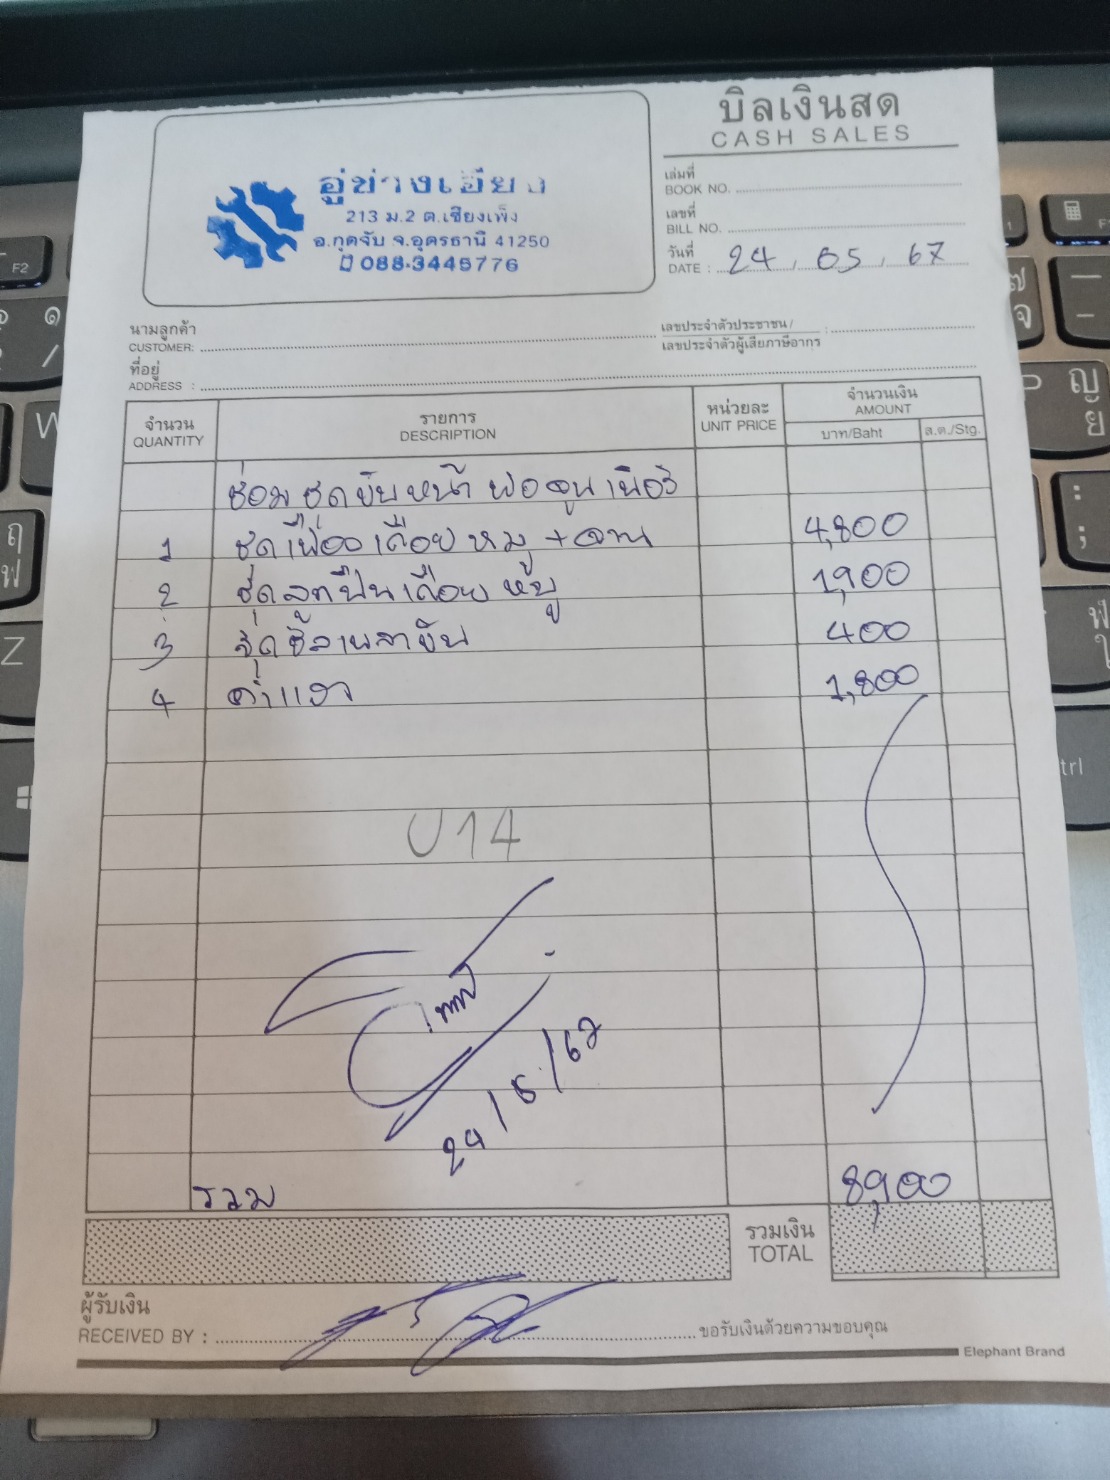 บิลเงินสด
CASH SALES
อู่ช่างเอียง
213 ม.2 ต.เชียงเพ็ง
อ.กุดจับ จ.อุดรธานี 41250
088-3445776
เล่มที่
BOOK NO.
เลขที่
BILL NO.
วันที่
DATE : 24, 05, 67
นามลูกค้า
CUSTOMER:
เลขประจำตัวประชาชน /
เลขประจำตัวผู้เสียภาษีอากร :
ที่อยู่
ADDRESS :
จำนวน รายการ หน่วยละ จำนวนเงิน
QUANTITY DESCRIPTION UNIT PRICE AMOUNT
บาท/Baht ส.ต./Stg.
ซ่อมชุดขับหน้า ฟอจูนเนอร์
1 ชุดเฟืองเดือยหมู + จาน 4,800
2 ชุดลูกปืนเดือยหมู 1,900
3 ชุดซีลเพลาขับ 400
4 ค่าแรง 1,800
U14
24/5/67
รวม 8,900
รวมเงิน
TOTAL
ผู้รับเงิน
RECEIVED BY :
ขอรับเงินด้วยความขอบคุณ
Elephant Brand